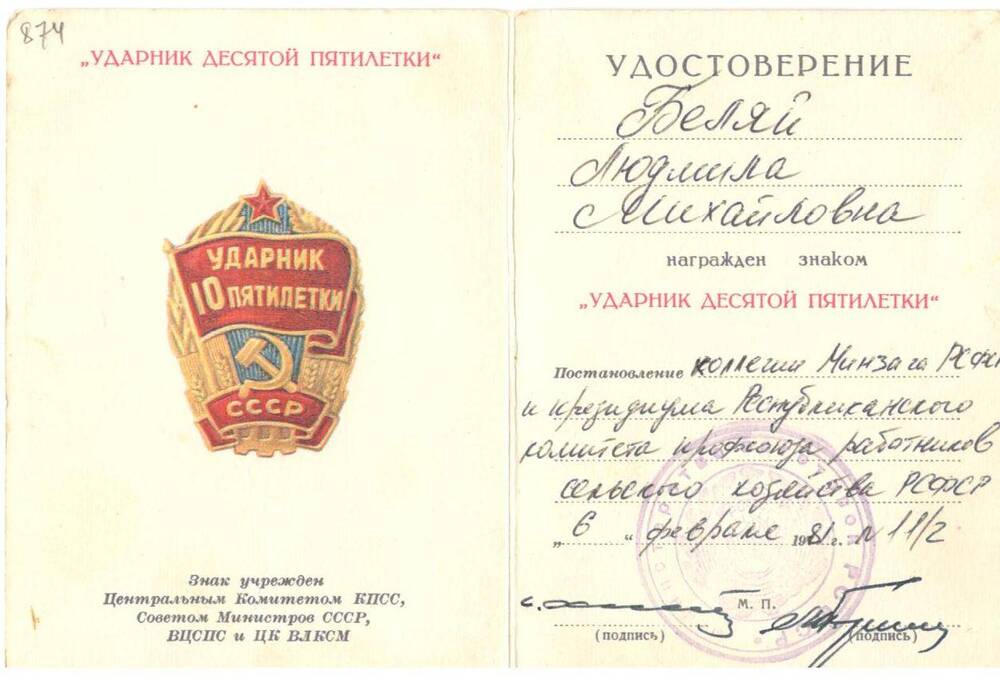 874
„УДАРНИК ДЕСЯТОЙ ПЯТИЛЕТКИ“
УДАРНИК
10 ПЯТИЛЕТКИ
СССР
Знак учрежден
Центральным Комитетом КПСС,
Советом Министров СССР,
ВЦСПС и ЦК ВЛКСМ
УДОСТОВЕРЕНИЕ
Беляй
Людмила
Михайловна
награжден знаком
„УДАРНИК ДЕСЯТОЙ ПЯТИЛЕТКИ“
Постановление коллегии Минзага РСФСР
и президиума Республиканского
комитета профсоюза работников
сельского хозяйства РСФСР
„6“ февраля 1981 г. № 11/2
М. П.
(подпись) (подпись)